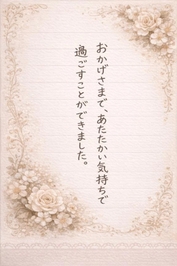 おかげさまで、あたたかい気持ちで
過ごすことができました。